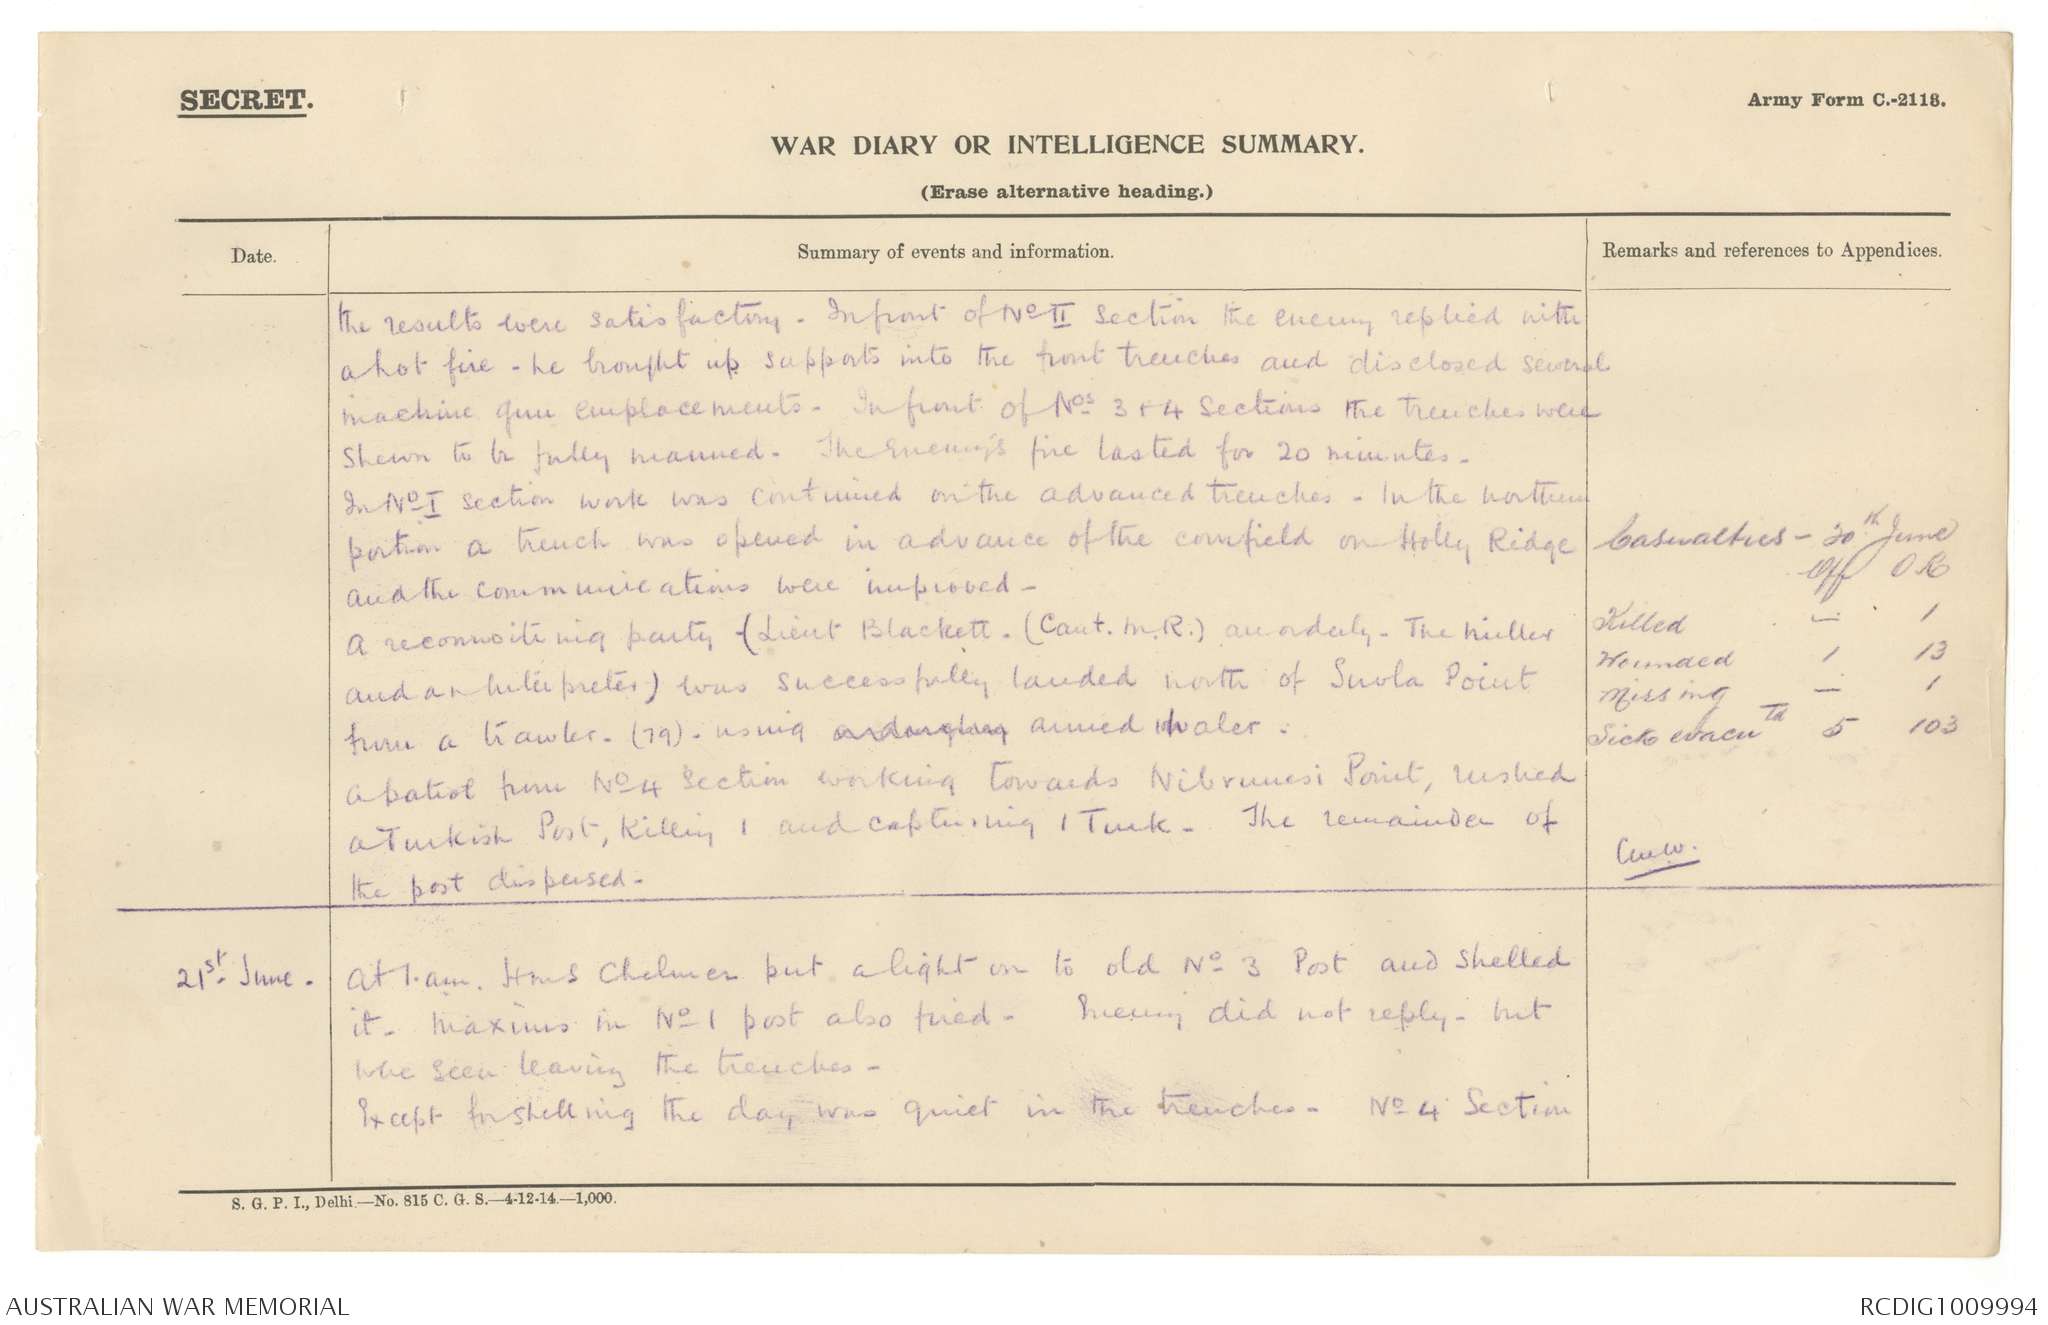 SECRET.
Army Form C.-2118.
WAR DIARY OR INTELLIGENCE SUMMARY.
(Erase alternative heading.)
Date.
Summary of events and information.
Remarks and references to Appendices.
the results were satisfactory - In front of No II Section the enemy replied with
a hot fire - he brought up supports into the front trenches and disclosed several
machine gun emplacements - In front of Nos 3 & 4 Sections the trenches were
shewn to be fully manned - The Enemy's fire lasted for 20 minutes -
In No I section work was continued on the advanced trenches - In the northern
portion a trench was opened in advance of the cornfield on Holly Ridge
and the communications were improved -
A reconnoitering party - (Lieut Blackett - (Cant. M.R.) an orderly - The
and an Interpreter) was successfully landed north of Suvla Point
from a trawler - (79) - using armed whaler -
a patrol from No 4 Section working towards Nibrunesi Point, rushed
a Turkish Post, killing 1 and capturing 1 Turk - The remainder of
the post dispersed -
Casualties - 20th June
Off O R
Killed — 1
Wounded 1 13
Missing — 1
Sick evacutd 5 103
21st June.
At 1. am. HMS Chelmer put a light on to old No 3 Post and shelled
it - Maxims in No 1 post also fired - Enemy did not reply - but
were seen leaving the trenches -
Except for shelling the day was quiet in the trenches - No 4 Section
S. G. P. I., Delhi.—No. 815 C. G. S.—4-12-14.—1,000.
AUSTRALIAN WAR MEMORIAL
RCDIG1009994